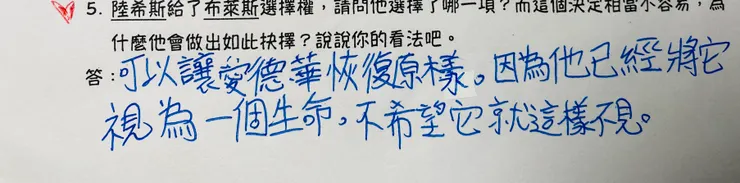 5. 陸希斯給了布萊斯選擇權，請問他選擇了哪一項？而這個決定相當不容易，為
什麼他會做出如此抉擇？說說你的看法吧。
答：可以讓愛德華恢復原樣。因為他已經將它
視為一個生命，不希望它就這樣不見。